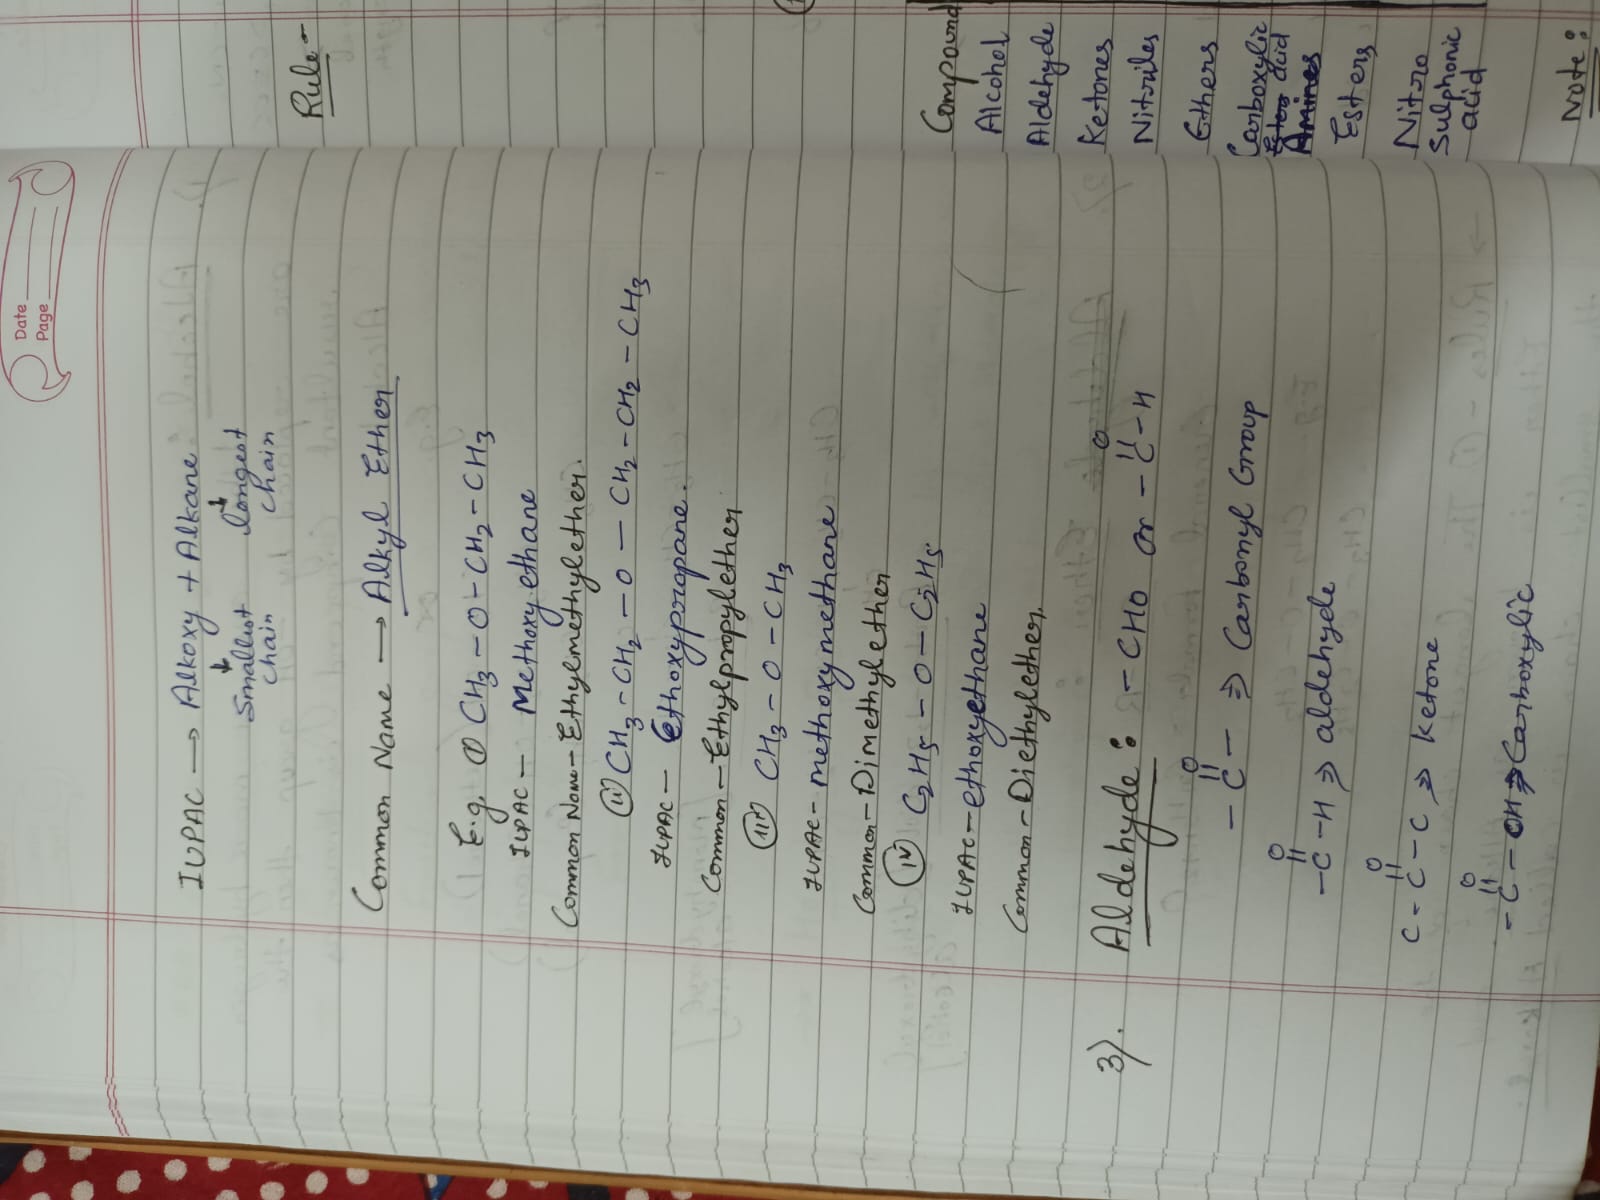 Date
Page
IUPAC → Alkoxy + Alkane
↓ ↓
Smallest longest
chain chain
Common Name → Alkyl Ether
E.g. ① CH3 - O - CH2 - CH3
IUPAC - Methoxy ethane
Common Name - Ethylmethylether.
(ii) CH3 - CH2 - O - CH2 - CH2 - CH3
IUPAC - Ethoxypropane.
Common - Ethylpropylether
(iii) CH3 - O - CH3
IUPAC - methoxymethane
Common - Dimethylether
(iv) C2H5 - O - C2H5
IUPAC - ethoxyethane
Common - Diethylether.
3). Aldehyde : - CHO or - C - H
O
||
O
||
- C - ⇒ Carbonyl Group
O
||
- C - H ⇒ aldehyde
O
||
C - C - C ⇒ ketone
O
||
- C - OH ⇒ Carboxylic
Rule -
Compound
Alcohol
Aldehyde
Ketones
Nitriles
Ethers
Carboxylic
acid
Amines
Esters
Nitro
Sulphonic
acid
Note :